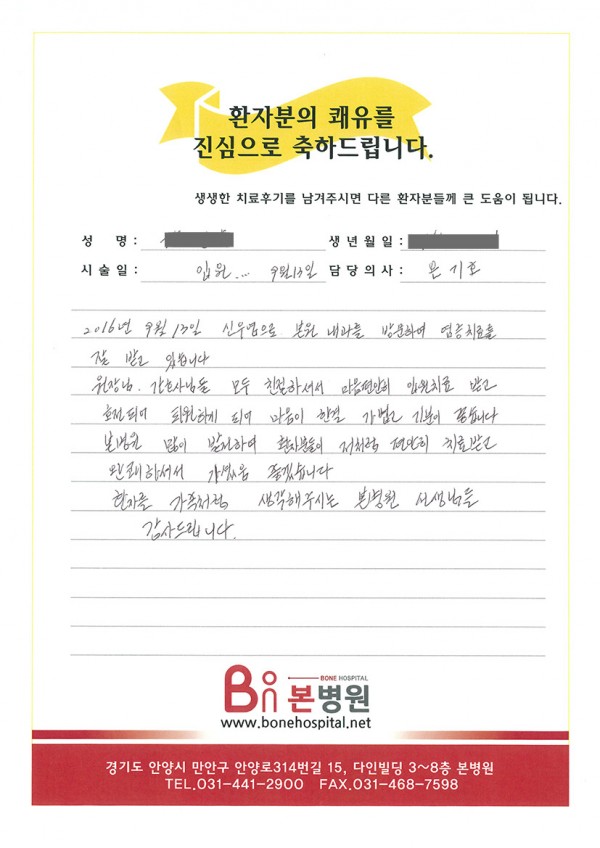 환자분의 쾌유를
진심으로 축하드립니다.
생생한 치료후기를 남겨주시면 다른 환자분들께 큰 도움이 됩니다.
성 명 : 생년월일 :
시술일 : 입원... 9월13일 담당의사 : 문기호
2016년 9월 13일 신우염으로 본원 내과를 방문하여 염증치료를
잘 받고 있습니다
원장님. 간호사님들 모두 친절하셔서 마음편안히 입원치료 받고
호전되어 퇴원하게 되어 마음이 한결 가볍고 기분이 좋습니다
본병원 많이 발전하여 환자분들이 저처럼 편안히 치료받고
완쾌하셔서 가셨음 좋겠습니다
환자를 가족처럼 생각해주시는 본병원 선생님들
감사드립니다.
BONE HOSPITAL
본병원
www.bonehospital.net
경기도 안양시 만안구 안양로314번길 15, 다인빌딩 3~8층 본병원
TEL.031-441-2900 FAX.031-468-7598